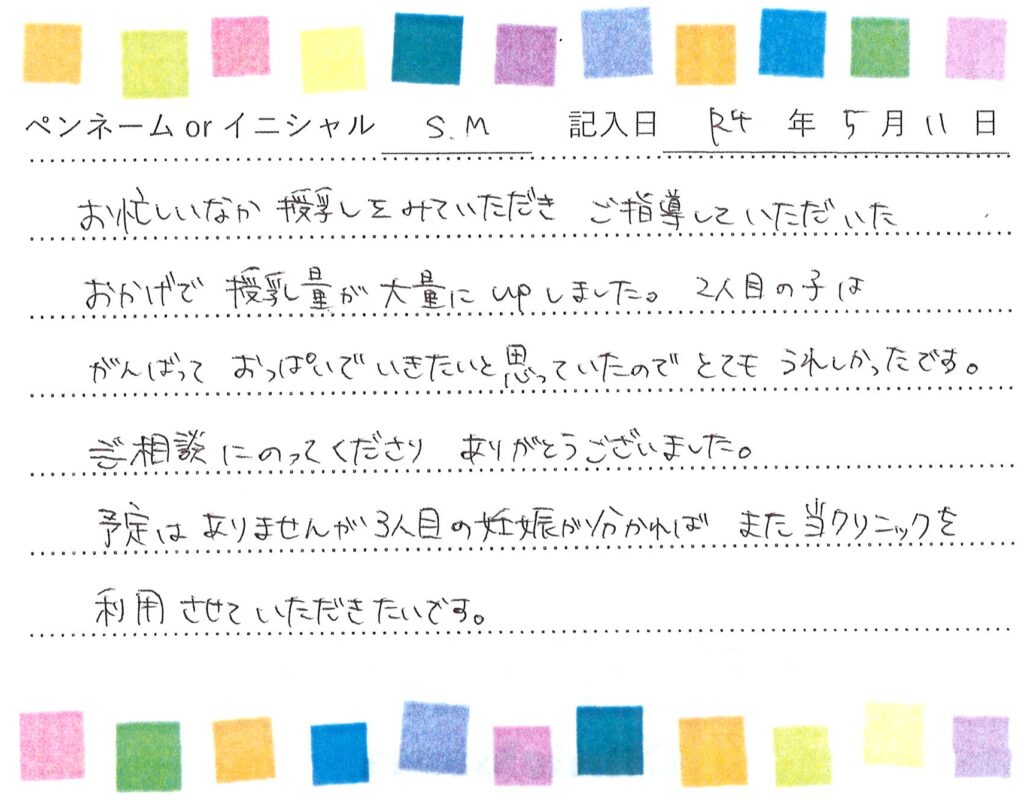 ペンネーム or イニシャル S.M 記入日 R4 年 5 月 11 日
お忙しいなか 授乳しをみていただき ご指導していただいた
おかげで 授乳量が大量に upしました。 2人目の子は
がんばって おっぱいでいきたいと思っていたので とても うれしかったです。
ご相談にのってくださり ありがとうございました。
予定は ありませんが 3人目の妊娠が分かれば また当クリニックを
利用させていただきたいです。